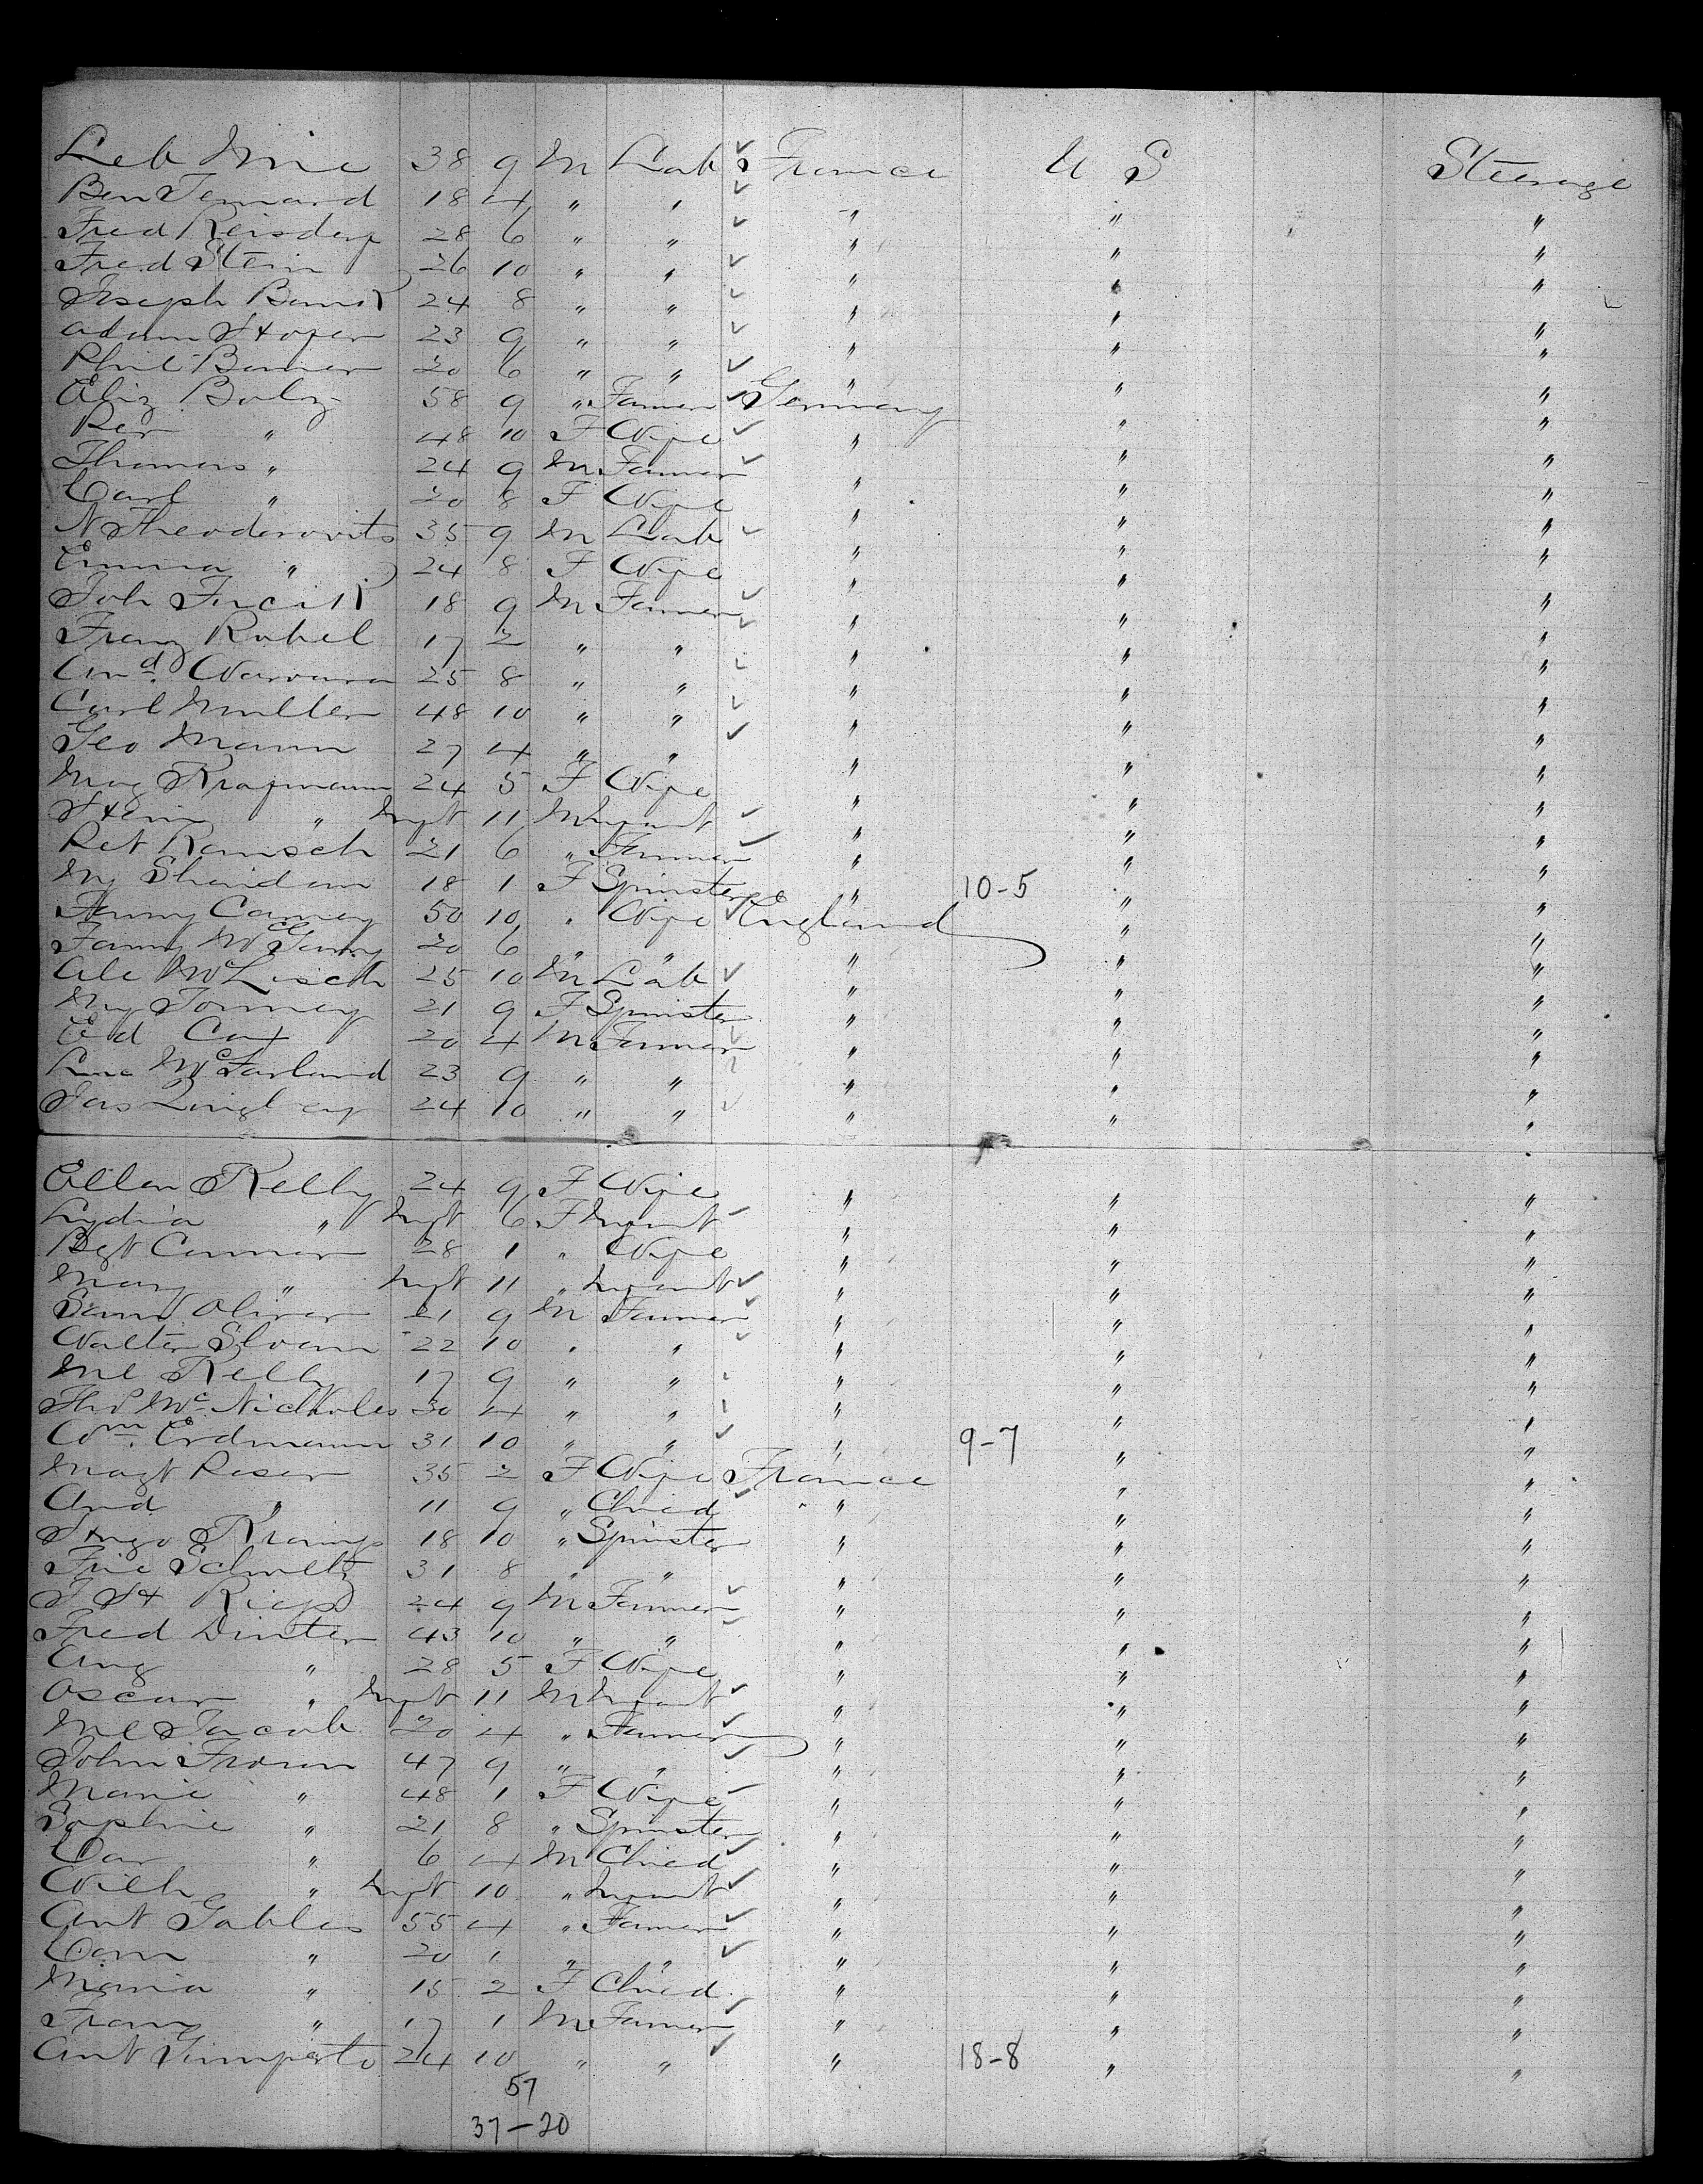 Leb Mie 38 9 M Lab France U S Steerage
Ben Tennard 18 4 " " " " "
Fred Reisdorf 28 6 " " " " "
Fred Stein 26 10 " " " " "
Joseph 24 8 " " " " "
Adam 23 9 " " " " "
Phil Bauer 20 6 " " " " "
Eliz Bulz 58 9 " Farmer Germany " "
" 48 10 F Wife " " "
Thomas " 24 9 M Farmer " " "
Carl " 20 8 F Wife " " "
N Theodorovits 35 9 M Lab " " "
Emma " 24 8 F Wife " " "
Joh 18 9 M Farmer " " "
Franz Rubel 17 2 " " " " "
And. 25 8 " " " " "
Carl Muller 48 10 " " " " "
Geo Mann 27 4 " " " " "
Mag Krapmann 24 5 F Wife " " "
" Inft 11 M Infant " " "
Pet Rausch 21 6 " Farmer " " "
My Sheridan 18 1 F Spinster " 10-5 " "
Fanny Carney 50 10 " Wife England " "
Fanny McGarry 20 6 " " " " "
Ale 25 10 M Lab " " "
My Tormey 21 9 F Spinster " " "
Ed Cox 20 4 M Farmer " " "
McFarland 23 9 " " " " "
Jas Quigley 24 10 " " " " "
Ellen Kelly 24 9 F Wife " " "
Lydia " Inft 6 F Infant " " "
Bgt Connor 28 1 " Wife " " "
Mary " Inft 11 " Infant " " "
Saml Oliver 21 9 M Farmer " " "
Walter Sloan 22 10 " " " " "
Ml Kelly 17 9 " " " " "
Thos McNicholes 30 4 " " " " "
Wm. Erdmann 31 10 " " " 9-7 " "
Magt Reser 35 2 F Wife France " "
And " 11 9 " Child " " "
18 10 " Spinster " " "
Schultz 31 8 " " " " "
24 9 M Farmer " " "
Fred Dinter 43 10 " " " " "
Aug " 28 5 F Wife " " "
Oscar " Inft 11 M Infant " " "
Ml Jacob 20 4 " Farmer " " "
John Frosen 47 9 " " " " "
Marie " 48 1 F Wife " " "
Sophie " 21 8 " Spinster " " "
Car " 6 4 M Child " " "
Wilh " Inft 10 " Infant " " "
Ant Gables 55 4 " Farmer " " "
" 20 1 " " " " "
Maria " 15 2 F Child " " "
Franz " 17 1 M Farmer " " "
Ant Gumperto 24 10 " " " 18-8 " "
57
37-20